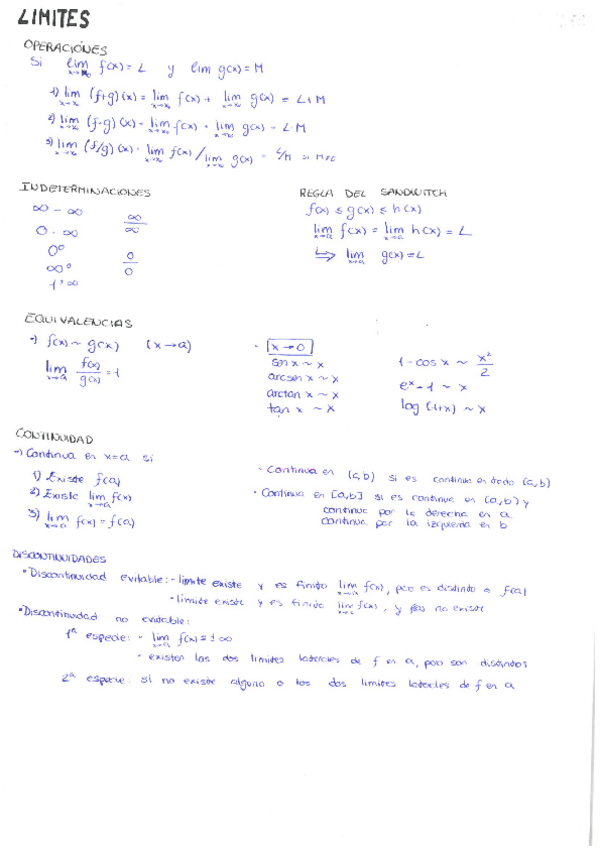 LIMITES
OPERACIONES
Si lim x→x₀ f(x) = L y lim g(x) = M
1) lim x→x₀ (f+g)(x) = lim x→x₀ f(x) + lim x→x₀ g(x) = L+M
2) lim x→x₀ (f·g)(x) = lim x→x₀ f(x) · lim x→x₀ g(x) = L·M
3) lim x→x₀ (f/g)(x) = lim x→x₀ f(x) / lim x→x₀ g(x) = L/M si M≠0
INDETERMINACIONES
∞ - ∞ ∞/∞
0 · ∞
0⁰ 0/0
∞⁰
1^∞
REGLA DEL SANDWITCH
f(x) ≤ g(x) ≤ h(x)
lim x→a f(x) = lim x→a h(x) = L
↳ lim x→a g(x) = L
EQUIVALENCIAS
·) f(x) ~ g(x) (x→a)
lim x→a f(x)/g(x) = 1
· x→0
sen x ~ x
arcsen x ~ x
arctan x ~ x
tan x ~ x
1 - cos x ~ x²/2
eˣ - 1 ~ x
log (1+x) ~ x
CONTINUIDAD
·) Continua en x=a si
1) Existe f(a)
2) Existe lim x→a f(x)
3) lim x→a f(x) = f(a)
· Continua en (a,b) si es continua en todo (a,b)
· Continua en [a,b] si es continua en (a,b) y
continua por la derecha en a
continua por la izquierda en b
DISCONTINUIDADES
· Discontinuidad evitable: - limite existe y es finito lim x→a f(x), pero es distinto a f(a)
- limite existe y es finito lim x→a f(x), y no existe
· Discontinuidad no evitable:
1ª especie: - lim x→a f(x) = ±∞
- existen los dos limites laterales de f en a, pero son distintos
2ª especie: si no existe alguno o los dos limites laterales de f en a